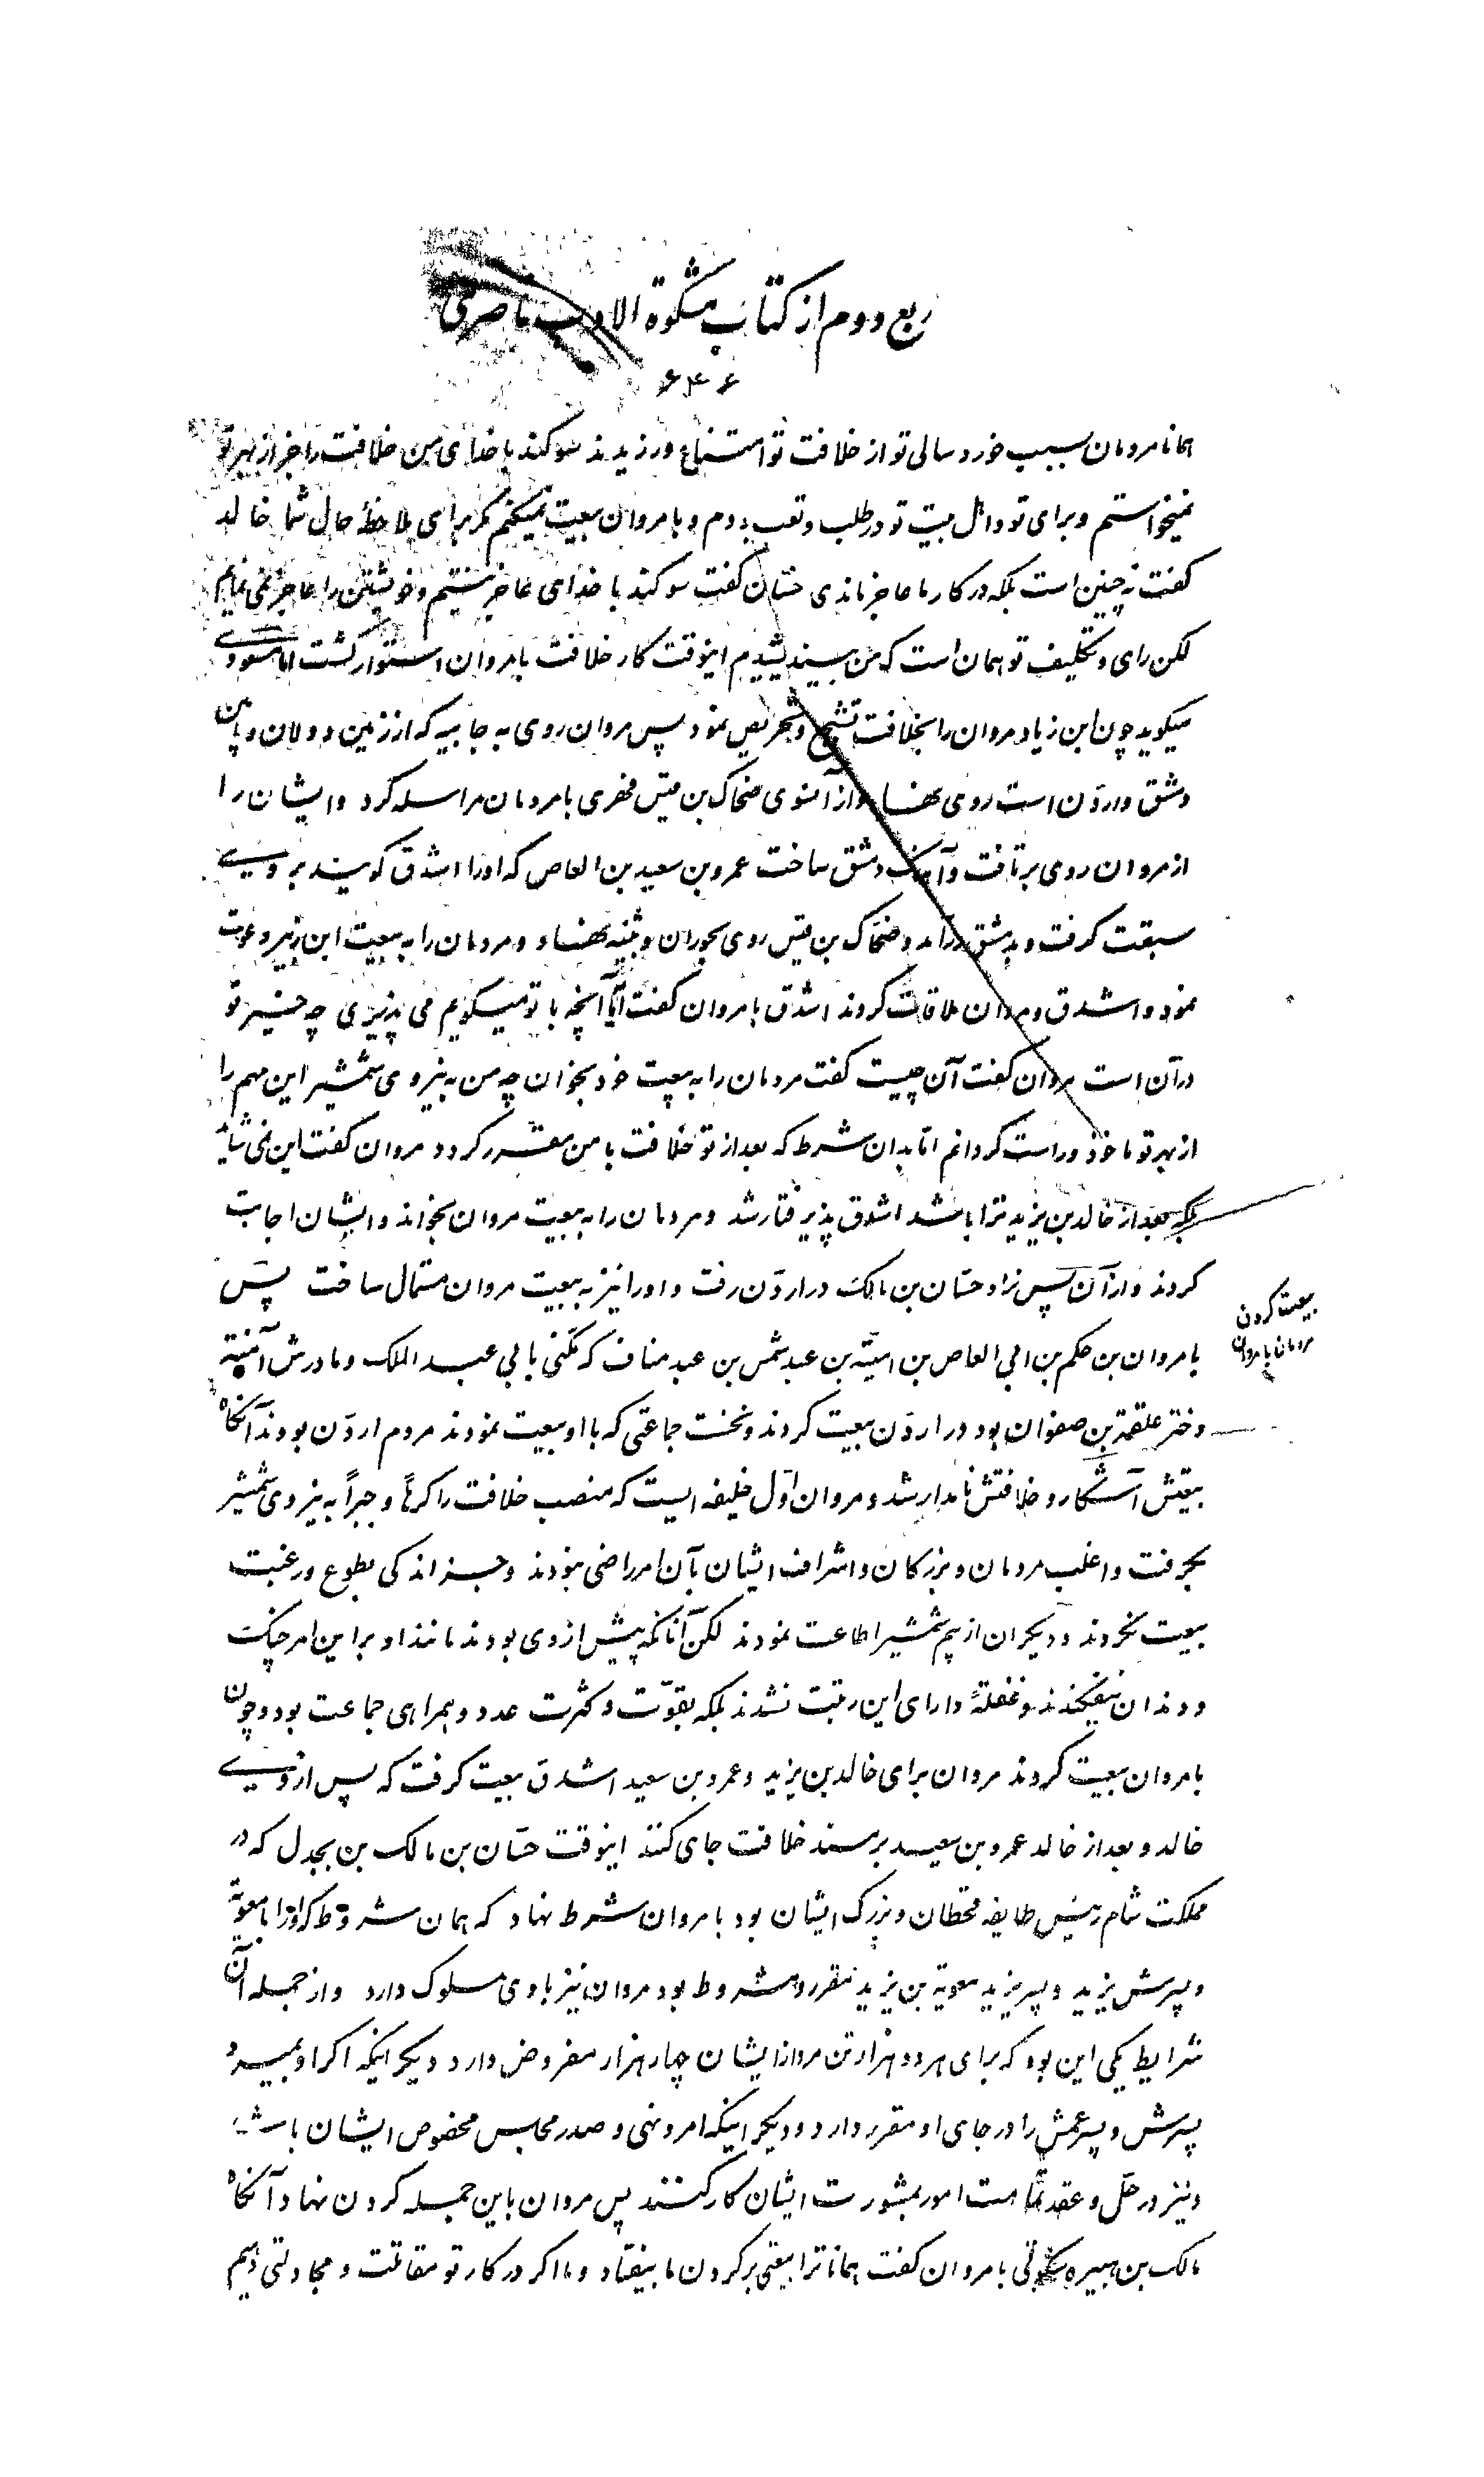 ربع دوم از کتاب مشکوة الادب ناصری
۶۴۶
همانا مردمان بسبب خورد سالی تو از خلافت تو امتناع ورزیدند سوکند با خدای من خلافت را جز از بهر تو
نمیخواستم و برای تو و اهل بیت تو در طلب و تعب بودم و با مروان بیعت نمیکنم مکر برای ملاحظهٔ حال شما خالد
کفت نه چنین است بلکه در کار ما عاجز ماندی حسّان کفت سوکند با خدای عاجز نیستم و خویشتن را عاجز نمی نمایم
لکن رای و تکلیف تو همان است که من بیندیشیدم اینوقت کار خلافت با مروان استوار کشت اما مسعودی
میکوید چون ابن زیاد مروان را بخلافت تشجیع و تحریص نمود پس مروان روی به جابیه که از زمین جولان و مابین
دمشق و اردّن است روی نهاد و از آنسوی ضحّاک بن قیس فهری با مردمان مراسله کرد و ایشان را
از مروان روی برتافت و آهنک دمشق ساخت عمرو بن سعید بن العاص که او را اشدق کویند بر وی
سبقت کرفت و بدمشق درآمد و ضحّاک بن قیس روی بحوران و بثنیه نهاد و مردمان را به بیعت ابن زبیر دعوت
نمود و اشدق و مروان ملاقات کردند اشدق با مروان کفت آیا آنچه با تو میکویم می پذیری چه خیر تو
در آن است مروان کفت آن چیست کفت مردمان را به بیعت خود بخوان چه من به نیروی شمشیر این مهم را
از بهر تو ماخوذ و راست کردانم امّا بدان شرط که بعد از تو خلافت با من مقرر کردد مروان کفت این نمی شاید
بلکه بعد از خالد بن یزید ترا باشد اشدق پذیرفتار شد و مردمان را به بیعت مروان بخواند و ایشان اجابت
کردند و از آن پس نزد حسّان بن مالک در اردّن رفت و او را نیز به بیعت مروان مستمال ساخت پس
بیعت کردن
مردمان با مروان
با مروان بن حکم بن ابی العاص بن امیّة بن عبد شمس بن عبد مناف که مکنّی بابی عبد الملک و مادرش آمنة
دختر علقمة بن صفوان بود در اردّن بیعت کردند و نخست جماعتی که با او بیعت نمودند مردم اردّن بودند آنکاه
بیعتش آشکار و خلافتش نامدار شد و مروان اوّل خلیفه ایست که منصب خلافت را کرهاً و جبراً به نیروی شمشیر
بکرفت و اغلب مردمان و بزرکان و اشراف ایشان بآن امر راضی نبودند و جز اندکی بطوع و رغبت
بیعت نکردند و دیکران از بیم شمشیر اطاعت نمودند لکن آنانکه پیش از وی بودند مانند او بر این امر چنک
و دندان نیفکندند و غفلةً دارای این رتبت نشدند بلکه بقوّت و کثرت عدد و همراهی جماعت بود و چون
با مروان بیعت کردند مروان برای خالد بن یزید و عمرو بن سعید اشدق بیعت کرفت که پس از وی
خالد و بعد از خالد عمرو بن سعید بر مسند خلافت جای کند اینوقت حسّان بن مالک بن بجدل که در
مملکت شام رئیس طایفه قحطان و بزرک ایشان بود با مروان شرط نهاد که همان شروط که او را با معویة
و پسرش یزید و پسر یزید معویة بن یزید مقرر و مشروط بود مروان نیز با وی مسلوک دارد و از جمله آن
شرایط یکی این بود که برای هر دو هزار تن مرد از ایشان چهار هزار مفروض دارد دیکر اینکه اکر او بمیرد
پسرش و پسر عمش را در جای او مقرر دارد و دیکر اینکه امر و نهی و صدر مجلس مخصوص ایشان باشد
و نیز در حلّ و عقد تمامت امور بمشورت ایشان کار کنند پس مروان باین جمله کردن نهاد آنکاه
مالک بن هبیره سکونی با مروان کفت همانا ترا بیعتی بر کردن ما بیفتاد و ما اکر در کار تو مقاتلت و مجادلتی دهیم